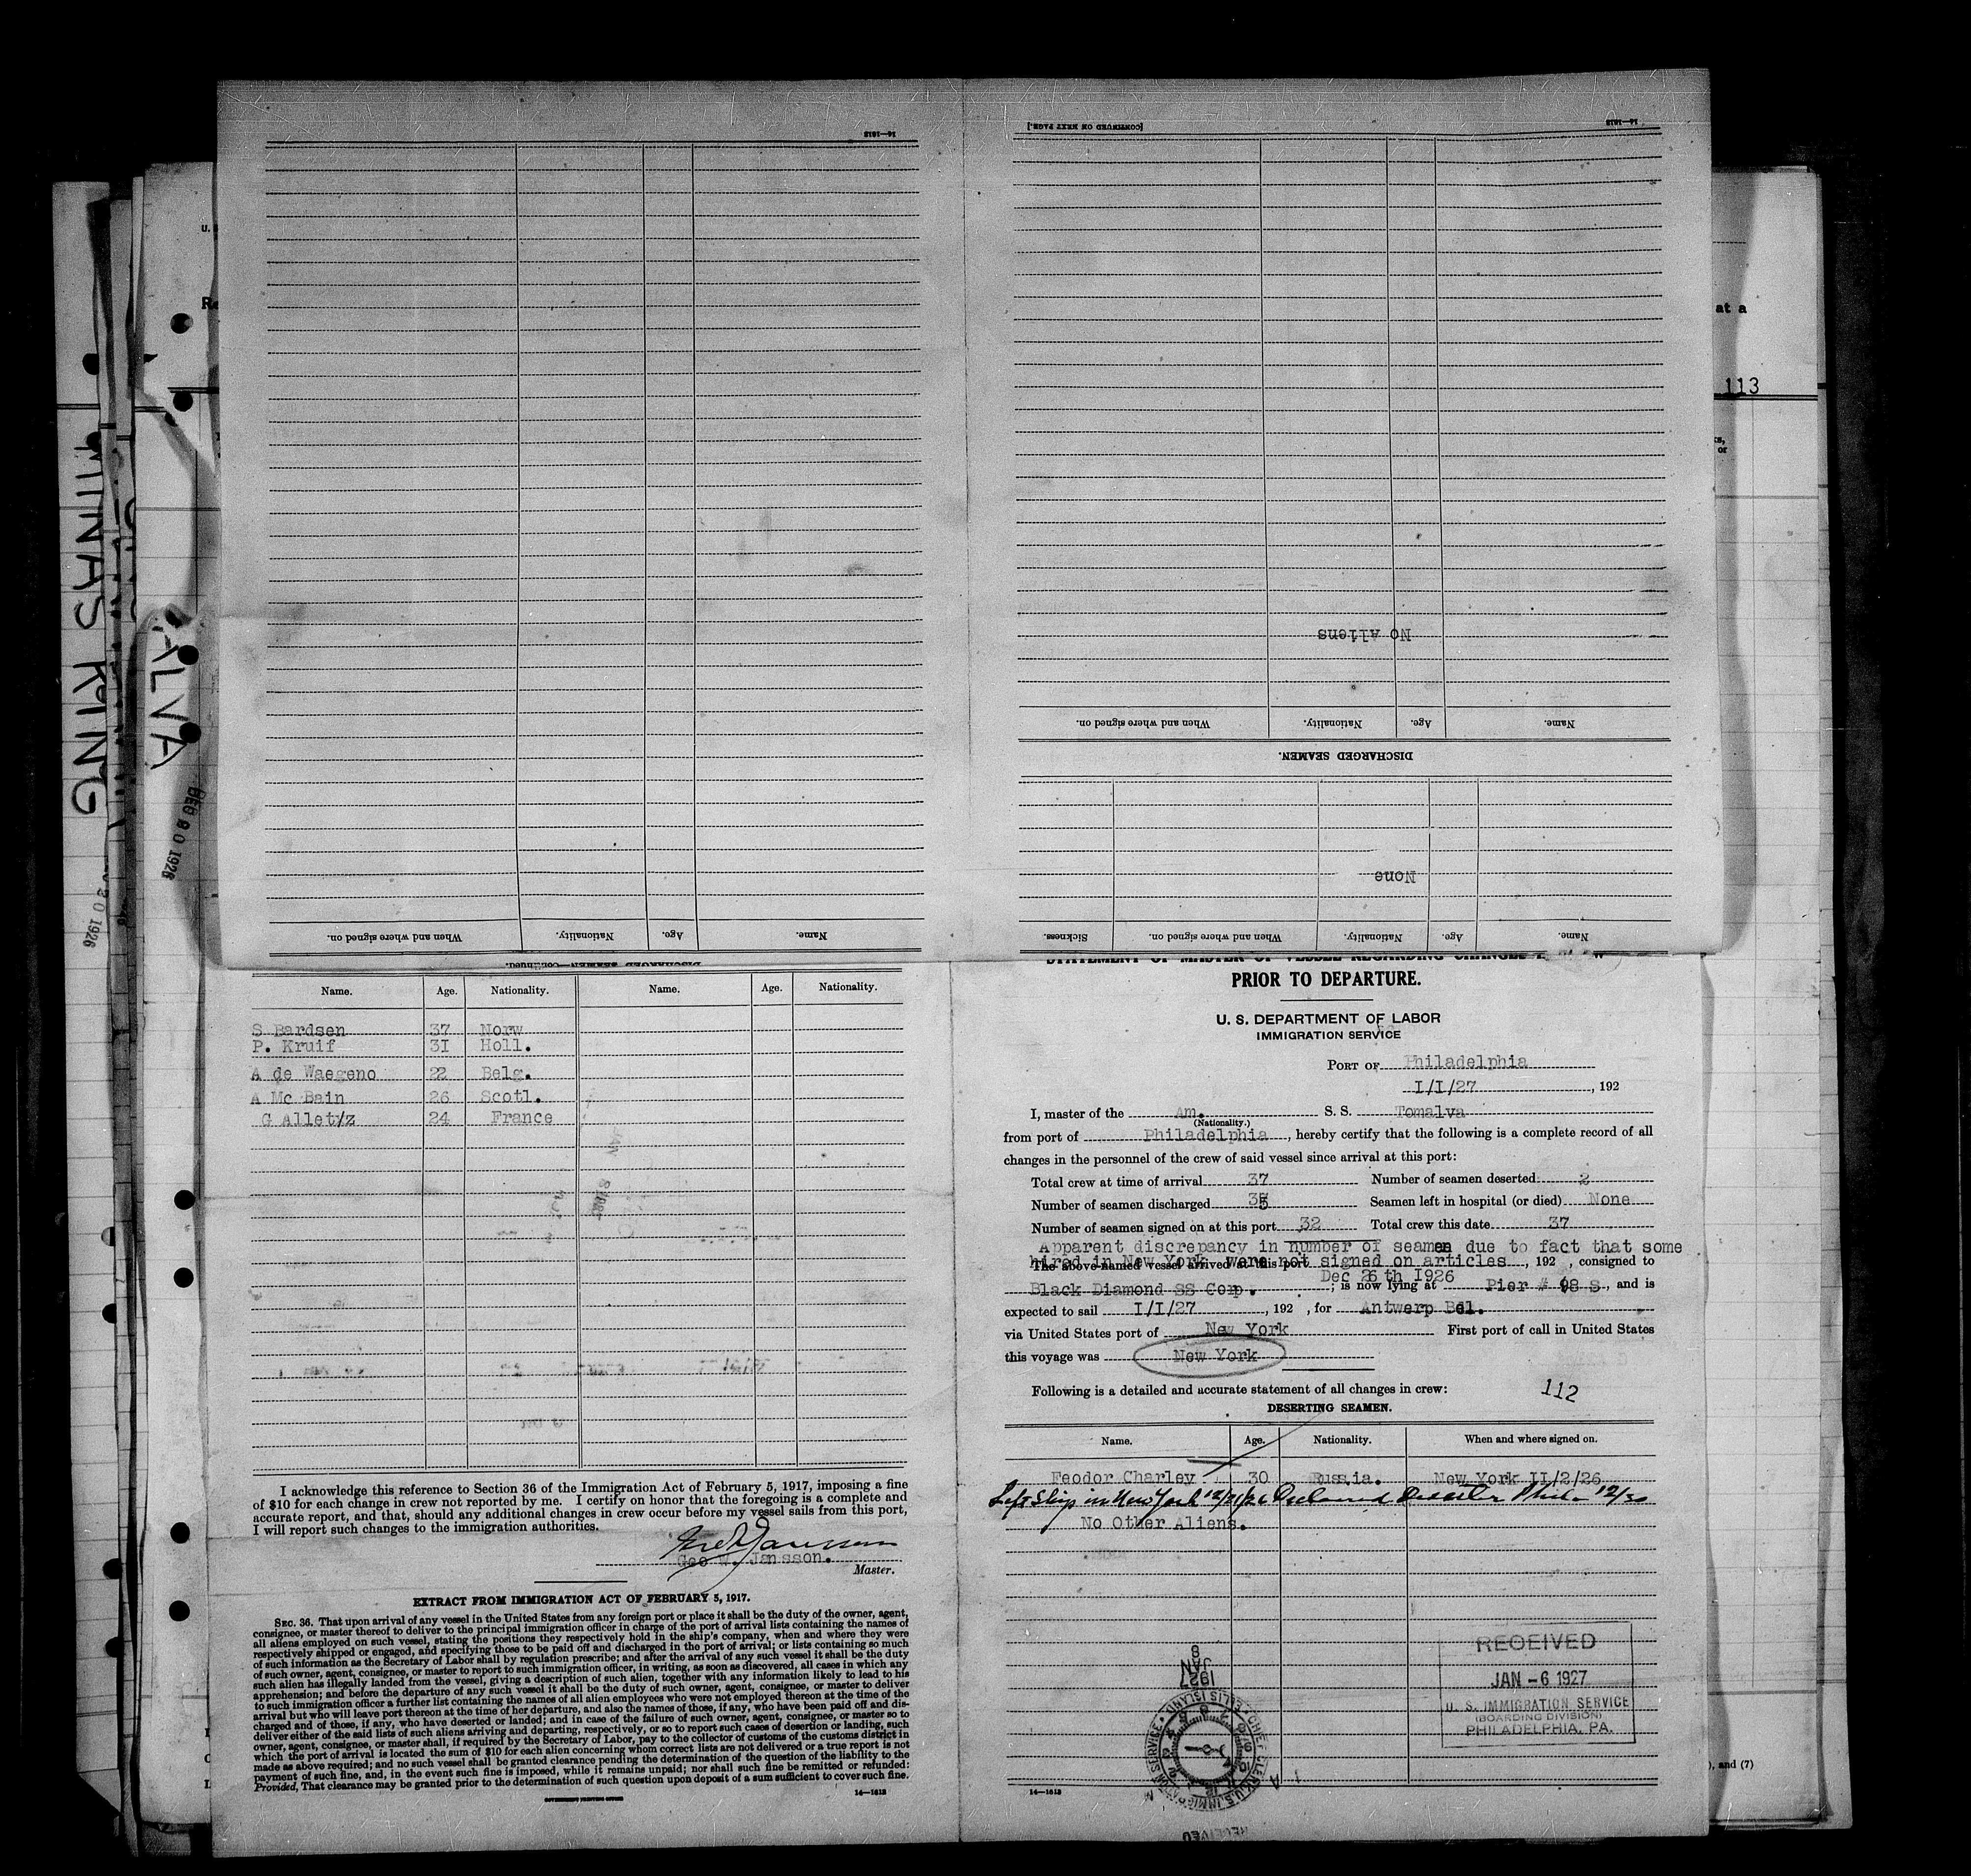 14—1613
[CONTINUED ON NEXT PAGE.]
14—1613
No Aliens
Name. Age. Nationality. When and where signed on.
DISCHARGED SEAMEN.
None
Name. Age. Nationality. When and where signed on.
Name. Age. Nationality. When and where signed on. Sickness.
DISCHARGED SEAMEN—Continued.
U. S.
at a
113
or
MINAS KING
ALVA
DEC 20 1926
20 1926
), and (7)
Name. Age. Nationality. Name. Age. Nationality.
S Bardsen 37 Norw
P. Kruif 31 Holl.
A de Waegeno 22 Belg.
A Mc Bain 26 Scotl.
G Alletz 24 France
I acknowledge this reference to Section 36 of the Immigration Act of February 5, 1917, imposing a fine
of $10 for each change in crew not reported by me. I certify on honor that the foregoing is a complete and
accurate report, and that, should any additional changes in crew occur before my vessel sails from this port,
I will report such changes to the immigration authorities.
Geo W. Jansson.
Master.
EXTRACT FROM IMMIGRATION ACT OF FEBRUARY 5, 1917.
SEC. 36. That upon arrival of any vessel in the United States from any foreign port or place it shall be the duty of the owner, agent,
consignee, or master thereof to deliver to the principal immigration officer in charge of the port of arrival lists containing the names of
all aliens employed on such vessel, stating the positions they respectively hold in the ship's company, when and where they were
respectively shipped or engaged, and specifying those to be paid off and discharged in the port of arrival; or lists containing so much
of such information as the Secretary of Labor shall by regulation prescribe; and after the arrival of any such vessel it shall be the duty
of such owner, agent, consignee, or master to report to such immigration officer, in writing, as soon as discovered, all cases in which any
such alien has illegally landed from the vessel, giving a description of such alien, together with any information likely to lead to his
apprehension; and before the departure of any such vessel it shall be the duty of such owner, agent, consignee, or master to deliver
to such immigration officer a further list containing the names of all alien employees who were not employed thereon at the time of the
arrival but who will leave port thereon at the time of her departure, and also the names of those, if any, who have been paid off and dis-
charged and of those, if any, who have deserted or landed; and in case of the failure of such owner, agent, consignee, or master so to
deliver either of the said lists of such aliens arriving and departing, respectively, or so to report such cases of desertion or landing, such
owner, agent, consignee, or master shall, if required by the Secretary of Labor, pay to the collector of customs of the customs district in
which the port of arrival is located the sum of $10 for each alien concerning whom correct lists are not delivered or a true report is not
made as above required; and no such vessel shall be granted clearance pending the determination of the question of the liability to the
payment of such fine, and, in the event such fine is imposed, while it remains unpaid; nor shall such fine be remitted or refunded:
Provided, That clearance may be granted prior to the determination of such question upon deposit of a sum sufficient to cover such fine.
GOVERNMENT PRINTING OFFICE
14—1613
STATEMENT OF MASTER OF VESSEL REGARDING CHANGES
PRIOR TO DEPARTURE.
U. S. DEPARTMENT OF LABOR
IMMIGRATION SERVICE
PORT OF Philadelphia
I/I/27, 192
I, master of the Am. S. S. Tomalva
(Nationality.)
from port of Philadelphia, hereby certify that the following is a complete record of all
changes in the personnel of the crew of said vessel since arrival at this port:
Total crew at time of arrival 37 Number of seamen deserted 2
Number of seamen discharged 35 Seamen left in hospital (or died) None
Number of seamen signed on at this port 32 Total crew this date 37
Apparent discrepancy in number of seamen due to fact that some
hired in New York were not signed on articles
The above-named vessel arrived at this port Dec 26th 1926, 192 , consigned to
Black Diamond SS Corp. ; is now lying at Pier # 98 S, and is
expected to sail I/I/27, 192 , for Antwerp Bel.
via United States port of New York First port of call in United States
this voyage was New York
Following is a detailed and accurate statement of all changes in crew: 112
DESERTING SEAMEN.
Name. Age. Nationality. When and where signed on.
Feodor Charley 30 Russia. New York II/2/26
Left Ship in New York 12/21/26 Declared Deserter Phila 12/30
No Other Aliens.
RECEIVED
JAN -6 1927
U. S. IMMIGRATION SERVICE
(BOARDING DIVISION)
PHILADELPHIA, PA.
1927
JAN
8
CHIEF CLERK, U.S. IMMIGRATION SERVICE • ELLIS ISLAND
RECEIVED
14—1613